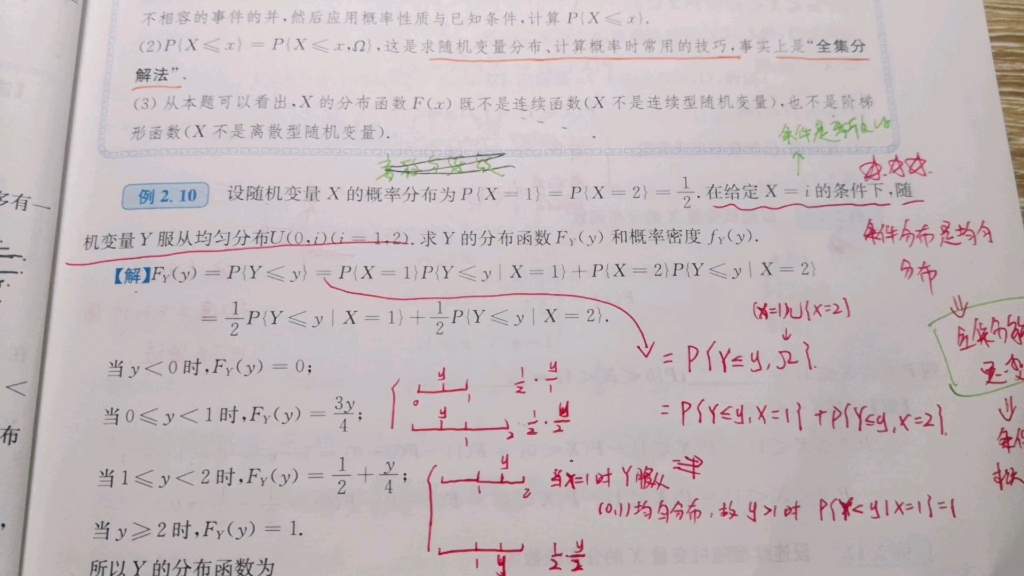 不相容的事件的并,然后应用概率性质与已知条件,计算 P{X⩽x}.
(2)P{X⩽x} = P{X⩽x,Ω},这是求随机变量分布、计算概率时常用的技巧,事实上是“全集分
解法”.
(3)从本题可以看出,X 的分布函数 F(x) 既不是连续函数(X 不是连续型随机变量),也不是阶梯
形函数(X 不是离散型随机变量).
条件是
例 2.10 设随机变量 X 的概率分布为 P{X = 1} = P{X = 2} = 1/2. 在给定 X = i 的条件下,随
机变量 Y 服从均匀分布U(0,i)(i = 1,2). 求 Y 的分布函数 F_Y(y) 和概率密度 f_Y(y).
条件分布是均匀
分布
【解】F_Y(y) = P{Y⩽y} = P{X = 1}P{Y⩽y | X = 1} + P{X = 2}P{Y⩽y | X = 2}
= 1/2 P{Y⩽y | X = 1} + 1/2 P{Y⩽y | X = 2}.
{X=1}∪{X=2}
= P{Y≤y, Ω}
= P{Y≤y, X=1} + P{Y≤y, X=2}.
当 y < 0 时,F_Y(y) = 0;
y
0 1
1/2 · y/1
当 0⩽y < 1 时,F_Y(y) = 3y/4;
y
1 2
1/2 · y/2
当 1⩽y < 2 时,F_Y(y) = 1/2 + y/4;
y
2
当X=1时 Y服从
(0,1)均匀分布,故 y>1时 P{Y<y|X=1}=1
当 y⩾2 时,F_Y(y) = 1.
1 y
1/2 · y/2
所以 Y 的分布函数为
多有一
<
布
条件